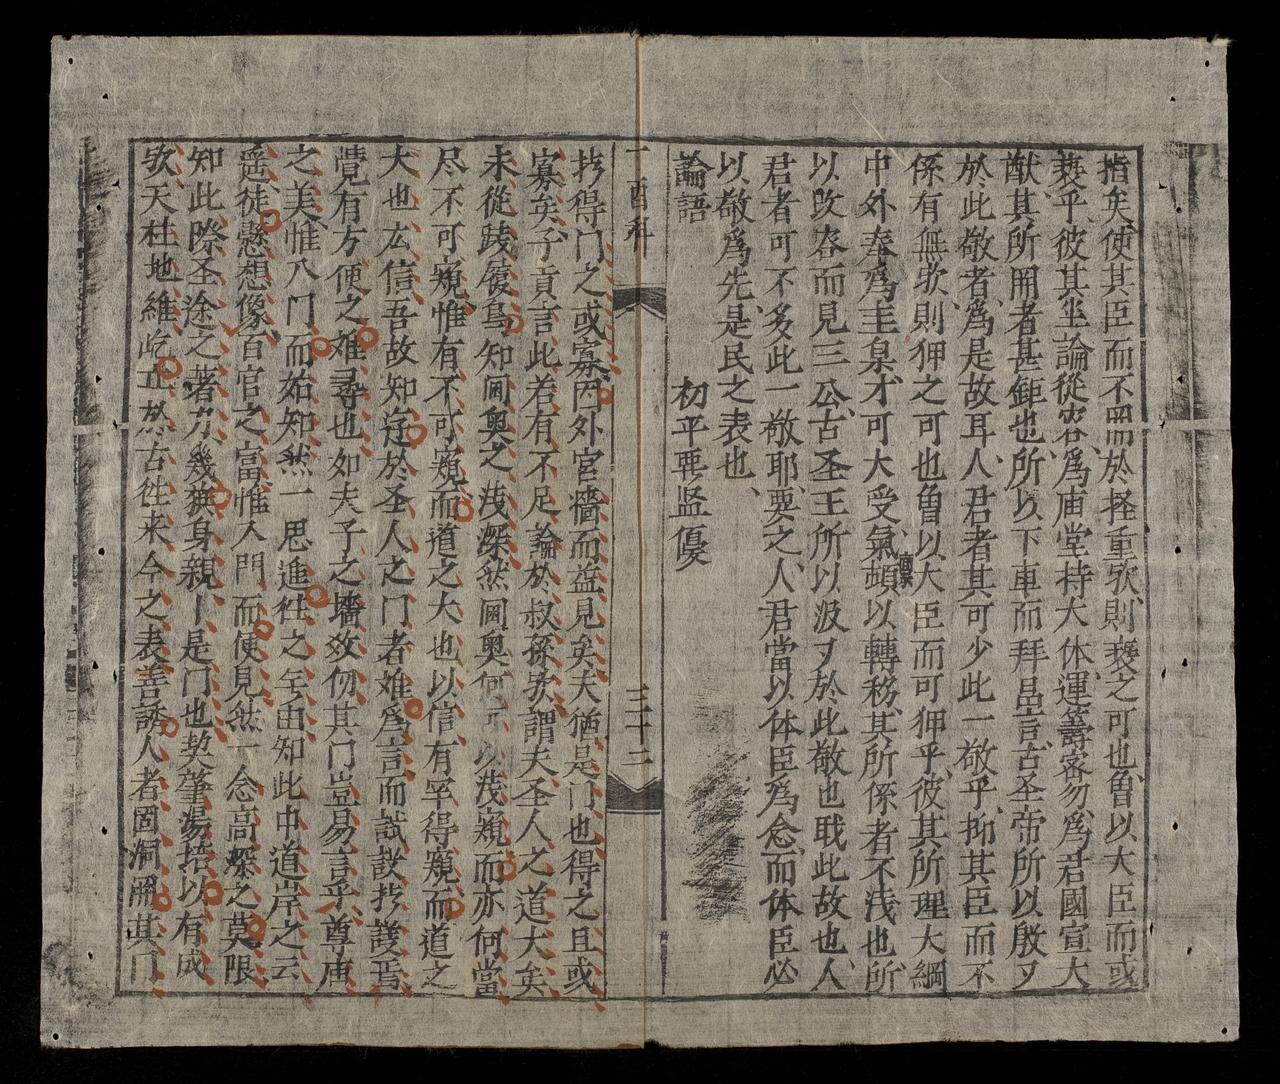 指矣使其臣而不置於輕重欤則褻之可也曽以大臣而或
褻乎彼其坐論從容為庙堂持大体運籌密勿為君國宣大
猷其所関者甚鉅也所以下車而拜昌言古圣帝所以殷于
於此敬者為是故耳人君者其可少此一敬乎抑其臣而不
係有無欤則狎之可也曽以大臣而可狎乎彼其所理大綱
中外奉為主臬才可大受氣頓以轉移其所係者不浅也所
以改容而見三公古圣王所以汲于於此敬也戢此故也人
君者可不多此一敬耶要之人君當以体臣為念而体臣必
以敬為先是民之表也
論語　初平要监優
一　酉科　三十二
得門之或寡因外宮牆而益見矣夫猶是门也得之且或
寡矣子貢言此若有不足論於叔孫欤謂夫圣人之道大矣
未從践履烏知閫奥之浅深然閫奥何可以浅窺而亦何當
尽不可窺惟有不可窺而道之大也以信有罕得窺而道之
大也厷信吾故知逰於圣人之门者难為言而試拟護焉
覺有方便之难尋也如夫子之墻效仞其门豈易言乎尊庙
之美惟八门而始知然一思進徃之何由知此中道岸之云
遥徒懸想像百官之富惟入門而便見然一念高深之莫限
知此際圣途之著力幾狹身親一是门也契肇湯培以有成
欤天柱地維屹立於古徃来今之表善誘人者固洞闢其门